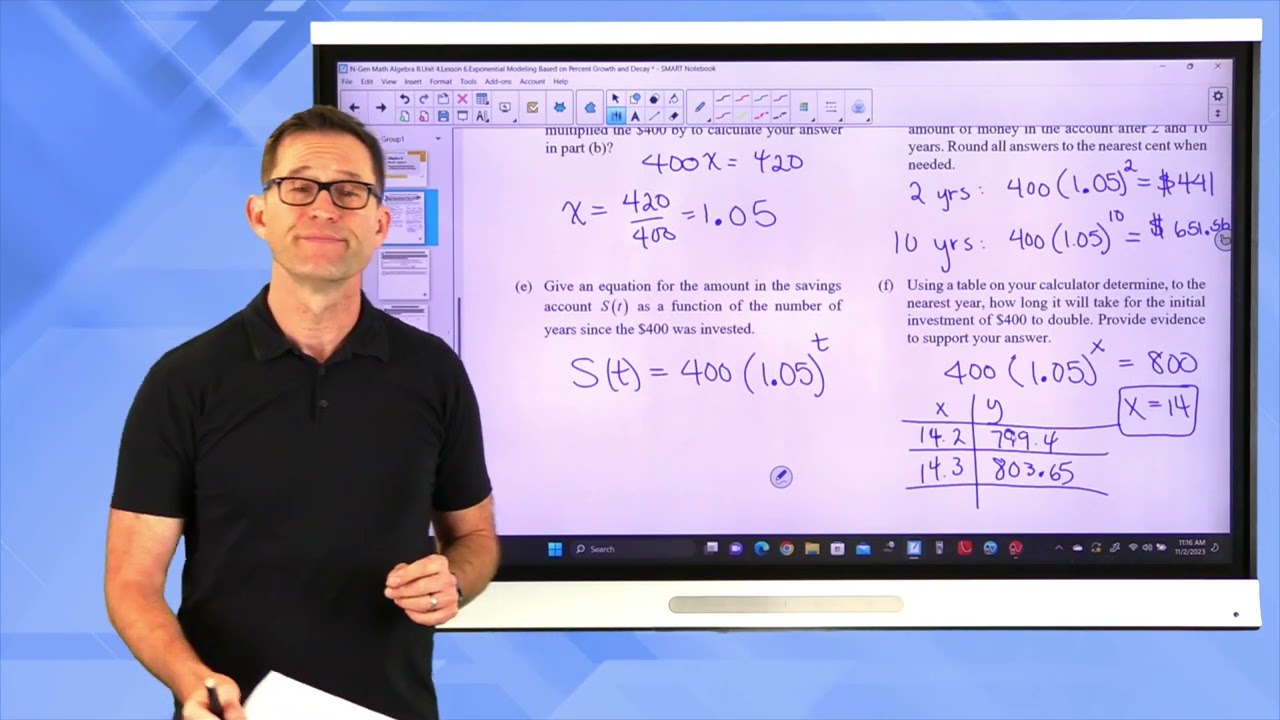 N-Gen Math Algebra II.Unit 4.Lesson 6.Exponential Modeling Based on Percent Growth and Decay * - SMART Notebook
File Edit View Insert Format Tools Add-ons Account Help
Group1
multiplied the $400 by to calculate your answer
in part (b)?
400x = 420
x = 420/400 = 1.05
amount of money in the account after 2 and 10
years. Round all answers to the nearest cent when
needed.
2 yrs: 400(1.05)^2 = $441
10 yrs: 400(1.05)^10 = $651.56
(e) Give an equation for the amount in the savings
account S(t) as a function of the number of
years since the $400 was invested.
S(t) = 400(1.05)^t
(f) Using a table on your calculator determine, to the
nearest year, how long it will take for the initial
investment of $400 to double. Provide evidence
to support your answer.
400(1.05)^x = 800
x y
14.2 799.4
14.3 803.65
x = 14
Search
11:16 AM
11/2/2023